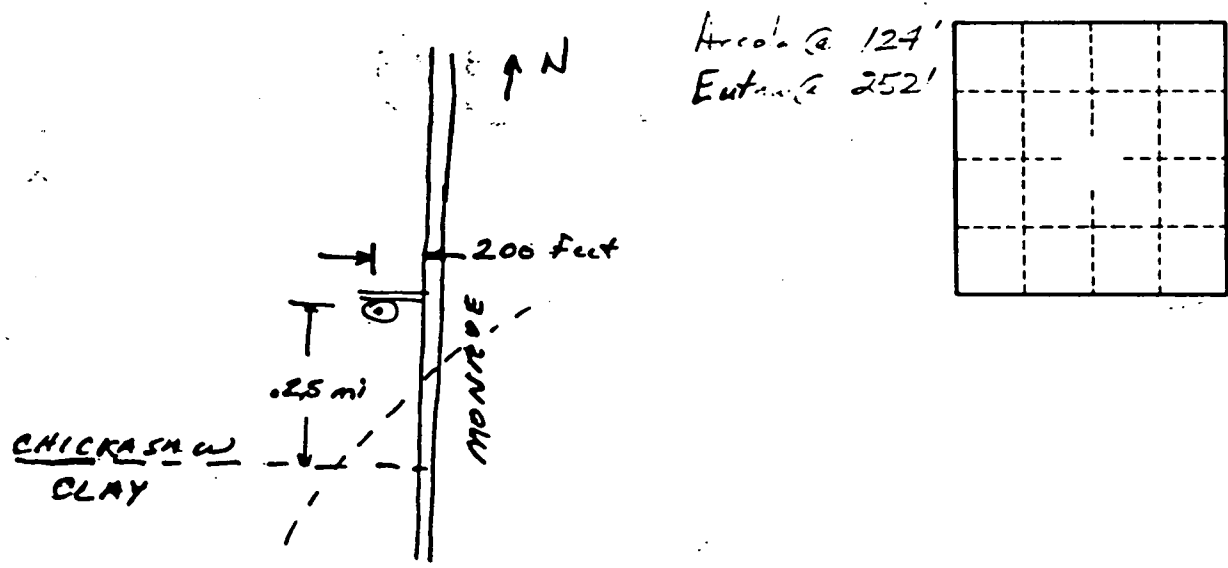 N
Arcola @ 124'
Eutaw @ 252'
200 Feet
MONROE
.25 mi
CHICKASAW
CLAY